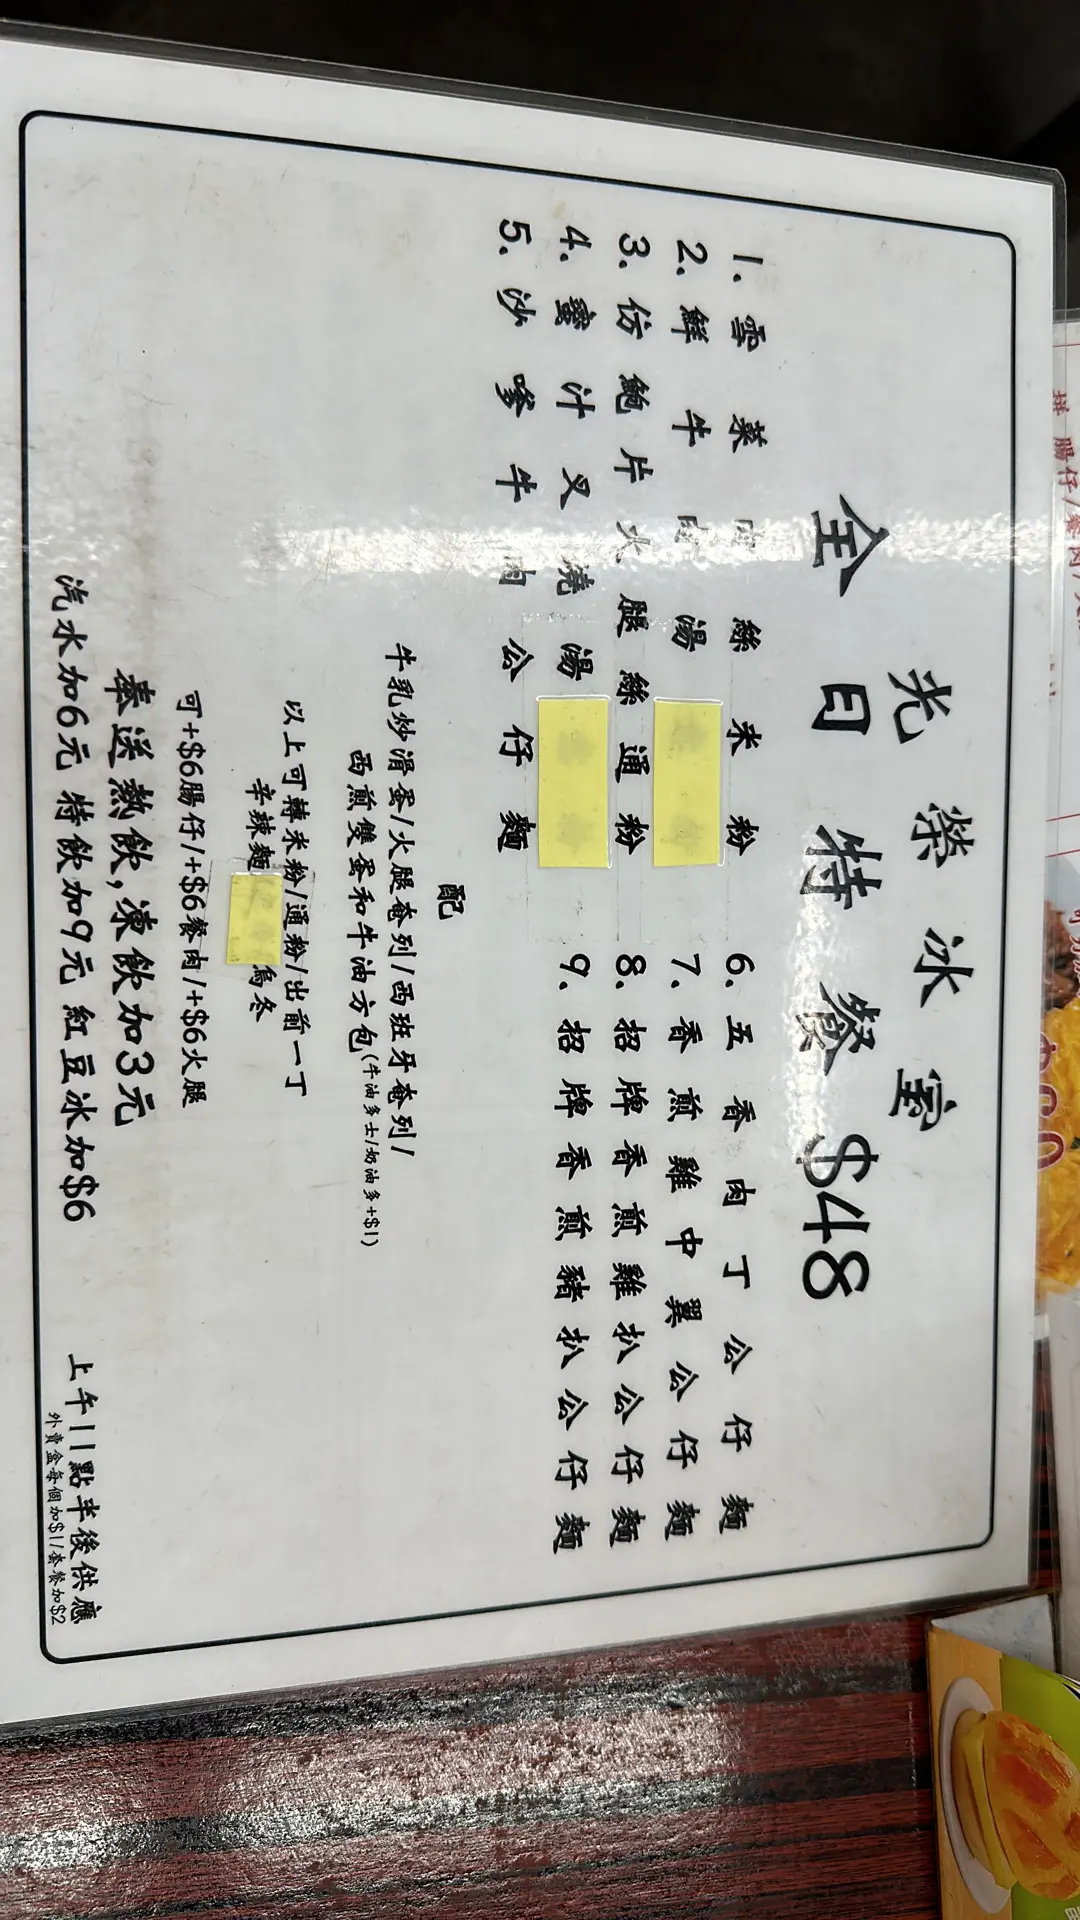 光榮冰室
全日特餐 $48
1. 雪菜肉絲米粉
2. 鮮牛肉湯
3. 仿鮑片火腿絲通粉
4. 蜜汁叉燒湯
5. 沙嗲牛肉公仔麵
6. 五香肉丁公仔麵
7. 香煎雞中翼公仔麵
8. 招牌香煎雞扒公仔麵
9. 招牌香煎豬扒公仔麵
配
牛乳炒滑蛋/火腿奄列/西班牙奄列/
西煎雙蛋和牛油方包(牛油多士/奶油多+$1)
以上可轉米粉/通粉/出前一丁
辛辣麵 烏冬
可+$6腸仔/+$6餐肉/+$6火腿
奉送熱飲,凍飲加3元
汽水加6元 特飲加9元 紅豆冰加$6
上午11點半後供應
外賣盒每個加$1/套餐加$2
拼腸仔/餐肉/火